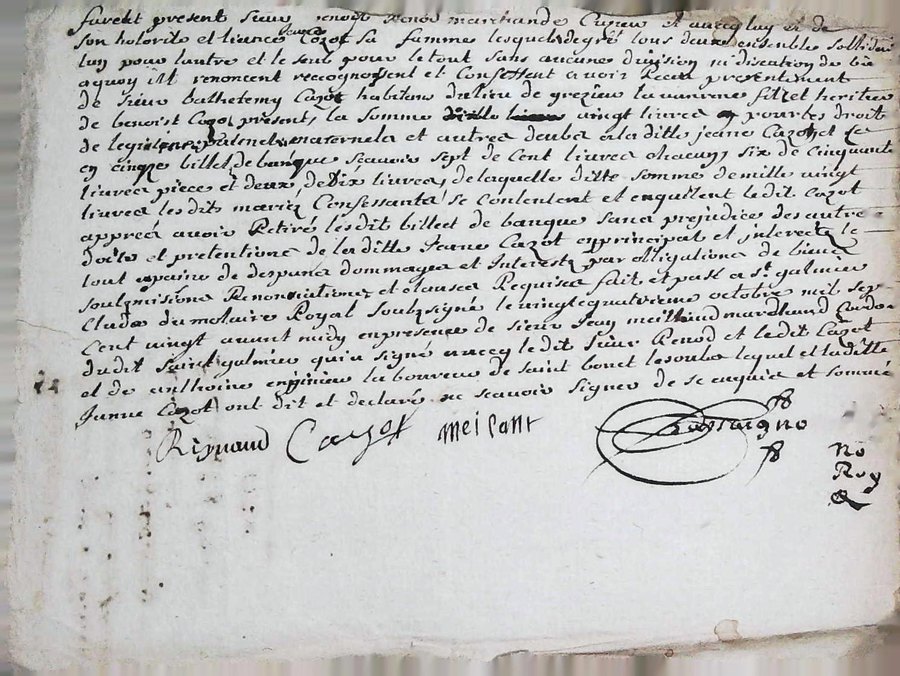 furent present sieur benoist Renod marchand de Cuzieu et avecq luy et de
son hotorite et licance Jeanne Cazot sa famme lesquels degré tous deux ensemble sollidai
lun pour lautre et le seul pour le tout sans aucune division ni discution de bie
aquoy ilt renoncent recognoissent et Confessent avoir Receu presentement
de sieur balhetemy Cazot habitant du lieu de grezieu la varenne filz et heritier
de benoist Cazot present, la somme vingt livres pour tes droits
de legitime paternel maternels et autres deubs a la ditte jeane Cazot
en cinqze billet de banque scavoir sept de Cent livres chacun, six de cinquante
livres piece et deux de Dix livres, de laquelle ditte somme de mille vingt
livres les dits mariez Confessants se contentent et enquittent le dit Cazot
apprés avoir Retiré lesdit billet de banque sans prejudice des autre
doits et pretentions de la ditte Jeane Cazot en principal et interects le
tout apaine de despans dommages et Interests par obligations de biens
soubzmisions Renonciations et clauses Requises fait et pasé a St galmier
Clude du notaire Royal soubzsigné le vingtquatrieme octobre mil sep
Cent vingt avant midy en presence de sieur Jean meilland marchand Cordo
dudit saint galmier quia signé avecq le dit sieur Renod et le dit Cazot
et de anthoine laboureur de saint bonet les oules lequel et la ditte
Janne Cazot ont dit et declaré ne scavoir signer de ce enquis et sommé
Reynaud Cazot meilant
No
Roy